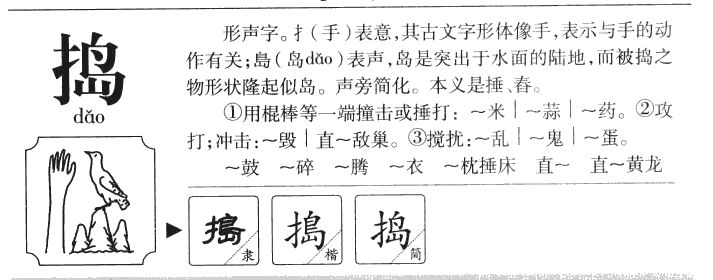 捣
dǎo
形声字。扌(手)表意,其古文字形体像手,表示与手的动
作有关;島(岛dǎo)表声,岛是突出于水面的陆地,而被捣之
物形状隆起似岛。声旁简化。本义是捶、舂。
①用棍棒等一端撞击或捶打:~米|~蒜|~药。②攻
打;冲击:~毁|直~敌巢。③搅扰:~乱|~鬼|~蛋。
~鼓 ~碎 ~腾 ~衣 ~枕捶床 直~ 直~黄龙
搗 隶 搗 楷 捣 简